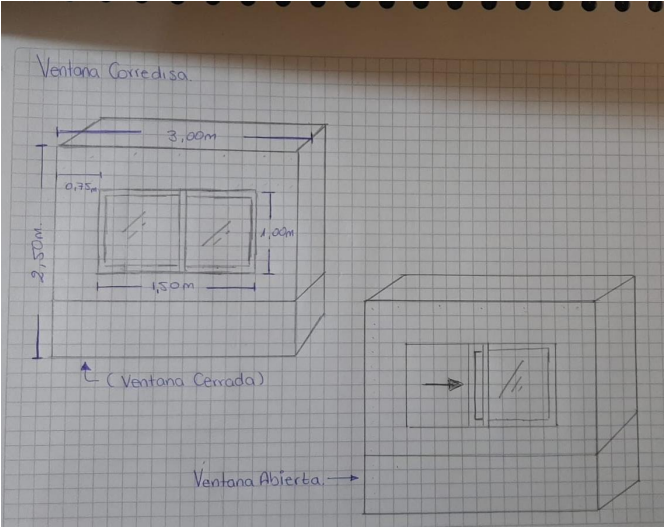 Ventana Corredisa.
3,00m
0,75m
2,50m.
1,00m
1,50m
(Ventana Cerrada)
Ventana Abierta.